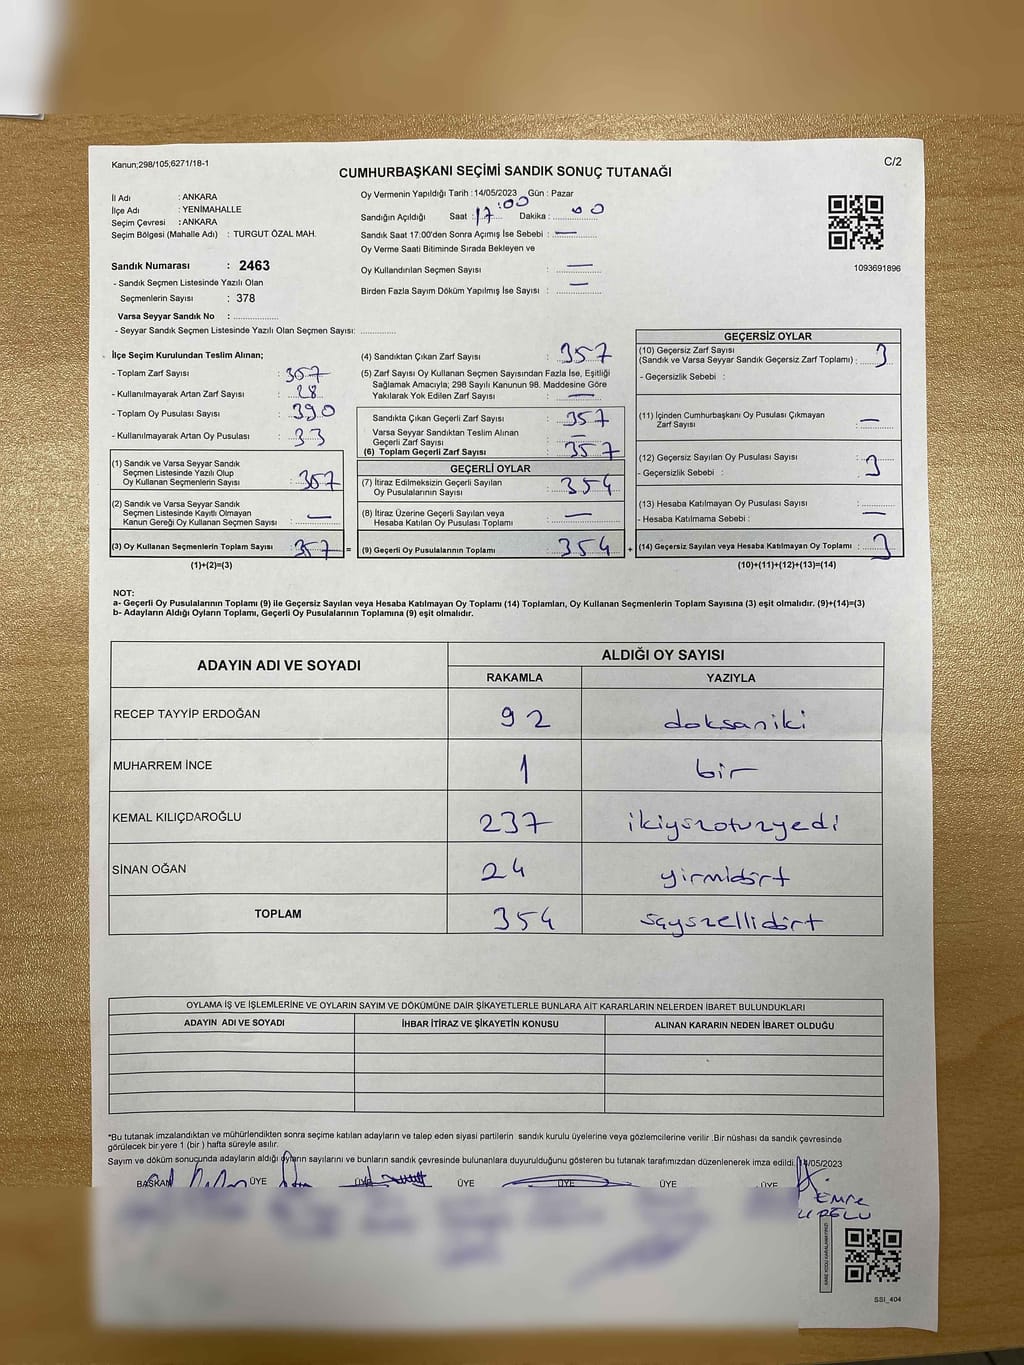 Kanun;298/105,6271/18-1
C/2
CUMHURBAŞKANI SEÇİMİ SANDIK SONUÇ TUTANAĞI
İl Adı : ANKARA
İlçe Adı : YENİMAHALLE
Seçim Çevresi : ANKARA
Seçim Bölgesi (Mahalle Adı) : TURGUT ÖZAL MAH.
Sandık Numarası : 2463
- Sandık Seçmen Listesinde Yazılı Olan
Seçmenlerin Sayısı : 378
Varsa Seyyar Sandık No : ..................
- Seyyar Sandık Seçmen Listesinde Yazılı Olan Seçmen Sayısı: ..............
Oy Vermenin Yapıldığı Tarih : 14/05/2023 Gün : Pazar
Sandığın Açıldığı Saat : 17:00 Dakika : 00
Sandık Saat 17:00'den Sonra Açımış İse Sebebi : —
Oy Verme Saati Bitiminde Sırada Bekleyen ve
Oy Kullandırılan Seçmen Sayısı : —
Birden Fazla Sayım Döküm Yapılmış İse Sayısı : —
1093691896
İlçe Seçim Kurulundan Teslim Alınan;
- Toplam Zarf Sayısı :
- Kullanılmayarak Artan Zarf Sayısı : 28
- Toplam Oy Pusulası Sayısı : 390
- Kullanılmayarak Artan Oy Pusulası : 33
(1) Sandık ve Varsa Seyyar Sandık
Seçmen Listesinde Yazılı Olup
Oy Kullanan Seçmenlerin Sayısı : 357
(2) Sandık ve Varsa Seyyar Sandık
Seçmen Listesinde Kayıtlı Olmayan
Kanun Gereği Oy Kullanan Seçmen Sayısı : —
(3) Oy Kullanan Seçmenlerin Toplam Sayısı : 357 =
(1)+(2)=(3)
(4) Sandıktan Çıkan Zarf Sayısı : 357
(5) Zarf Sayısı Oy Kullanan Seçmen Sayısından Fazla İse, Eşitliği
Sağlamak Amacıyla; 298 Sayılı Kanunun 98. Maddesine Göre
Yakılarak Yok Edilen Zarf Sayısı : —
Sandıkta Çıkan Geçerli Zarf Sayısı : 357
Varsa Seyyar Sandıktan Teslim Alınan
Geçerli Zarf Sayısı : —
(6) Toplam Geçerli Zarf Sayısı : 357
GEÇERLİ OYLAR
(7) İtiraz Edilmeksizin Geçerli Sayılan
Oy Pusulalarının Sayısı : 354
(8) İtiraz Üzerine Geçerli Sayılan veya
Hesaba Katılan Oy Pusulası Toplamı : —
(9) Geçerli Oy Pusulalarının Toplamı : 354 +
GEÇERSİZ OYLAR
(10) Geçersiz Zarf Sayısı
(Sandık ve Varsa Seyyar Sandık Geçersiz Zarf Toplamı) : 3
- Geçersizlik Sebebi :
(11) İçinden Cumhurbaşkanı Oy Pusulası Çıkmayan
Zarf Sayısı : —
(12) Geçersiz Sayılan Oy Pusulası Sayısı : 3
- Geçersizlik Sebebi :
(13) Hesaba Katılmayan Oy Pusulası Sayısı : —
- Hesaba Katılmama Sebebi :
(14) Geçersiz Sayılan veya Hesaba Katılmayan Oy Toplamı : 3
(10)+(11)+(12)+(13)=(14)
NOT:
a- Geçerli Oy Pusulalarının Toplamı (9) ile Geçersiz Sayılan veya Hesaba Katılmayan Oy Toplamı (14) Toplamları, Oy Kullanan Seçmenlerin Toplam Sayısına (3) eşit olmalıdır. (9)+(14)=(3)
b- Adayların Aldığı Oyların Toplamı, Geçerli Oy Pusulalarının Toplamına (9) eşit olmalıdır.
ADAYIN ADI VE SOYADI
ALDIĞI OY SAYISI
RAKAMLA YAZIYLA
RECEP TAYYİP ERDOĞAN 92 doksaniki
MUHARREM İNCE 1 bir
KEMAL KILIÇDAROĞLU 237 ikiyüzotuzyedi
SİNAN OĞAN 24 yirmidört
TOPLAM 354 üçyüzellidört
OYLAMA İŞ VE İŞLEMLERİNE VE OYLARIN SAYIM VE DÖKÜMÜNE DAİR ŞİKAYETLERLE BUNLARA AİT KARARLARIN NELERDEN İBARET BULUNDUKLARI
ADAYIN ADI VE SOYADI İHBAR İTİRAZ VE ŞİKAYETİN KONUSU ALINAN KARARIN NEDEN İBARET OLDUĞU
*Bu tutanak imzalandıktan ve mühürlendikten sonra seçime katılan adayların ve talep eden siyasi partilerin sandık kurulu üyelerine veya gözlemcilerine verilir .Bir nüshası da sandık çevresinde
görülecek bir yere 1 (bir ) hafta süreyle asılır.
Sayım ve döküm sonucunda adayların aldığı oyların sayılarını ve bunların sandık çevresinde bulunanlara duyurulduğunu gösteren bu tutanak tarafımızdan düzenlenerek imza edildi. 14/05/2023
BAŞKAN ÜYE ÜYE ÜYE ÜYE ÜYE ÜYE
Emre
SSI_404